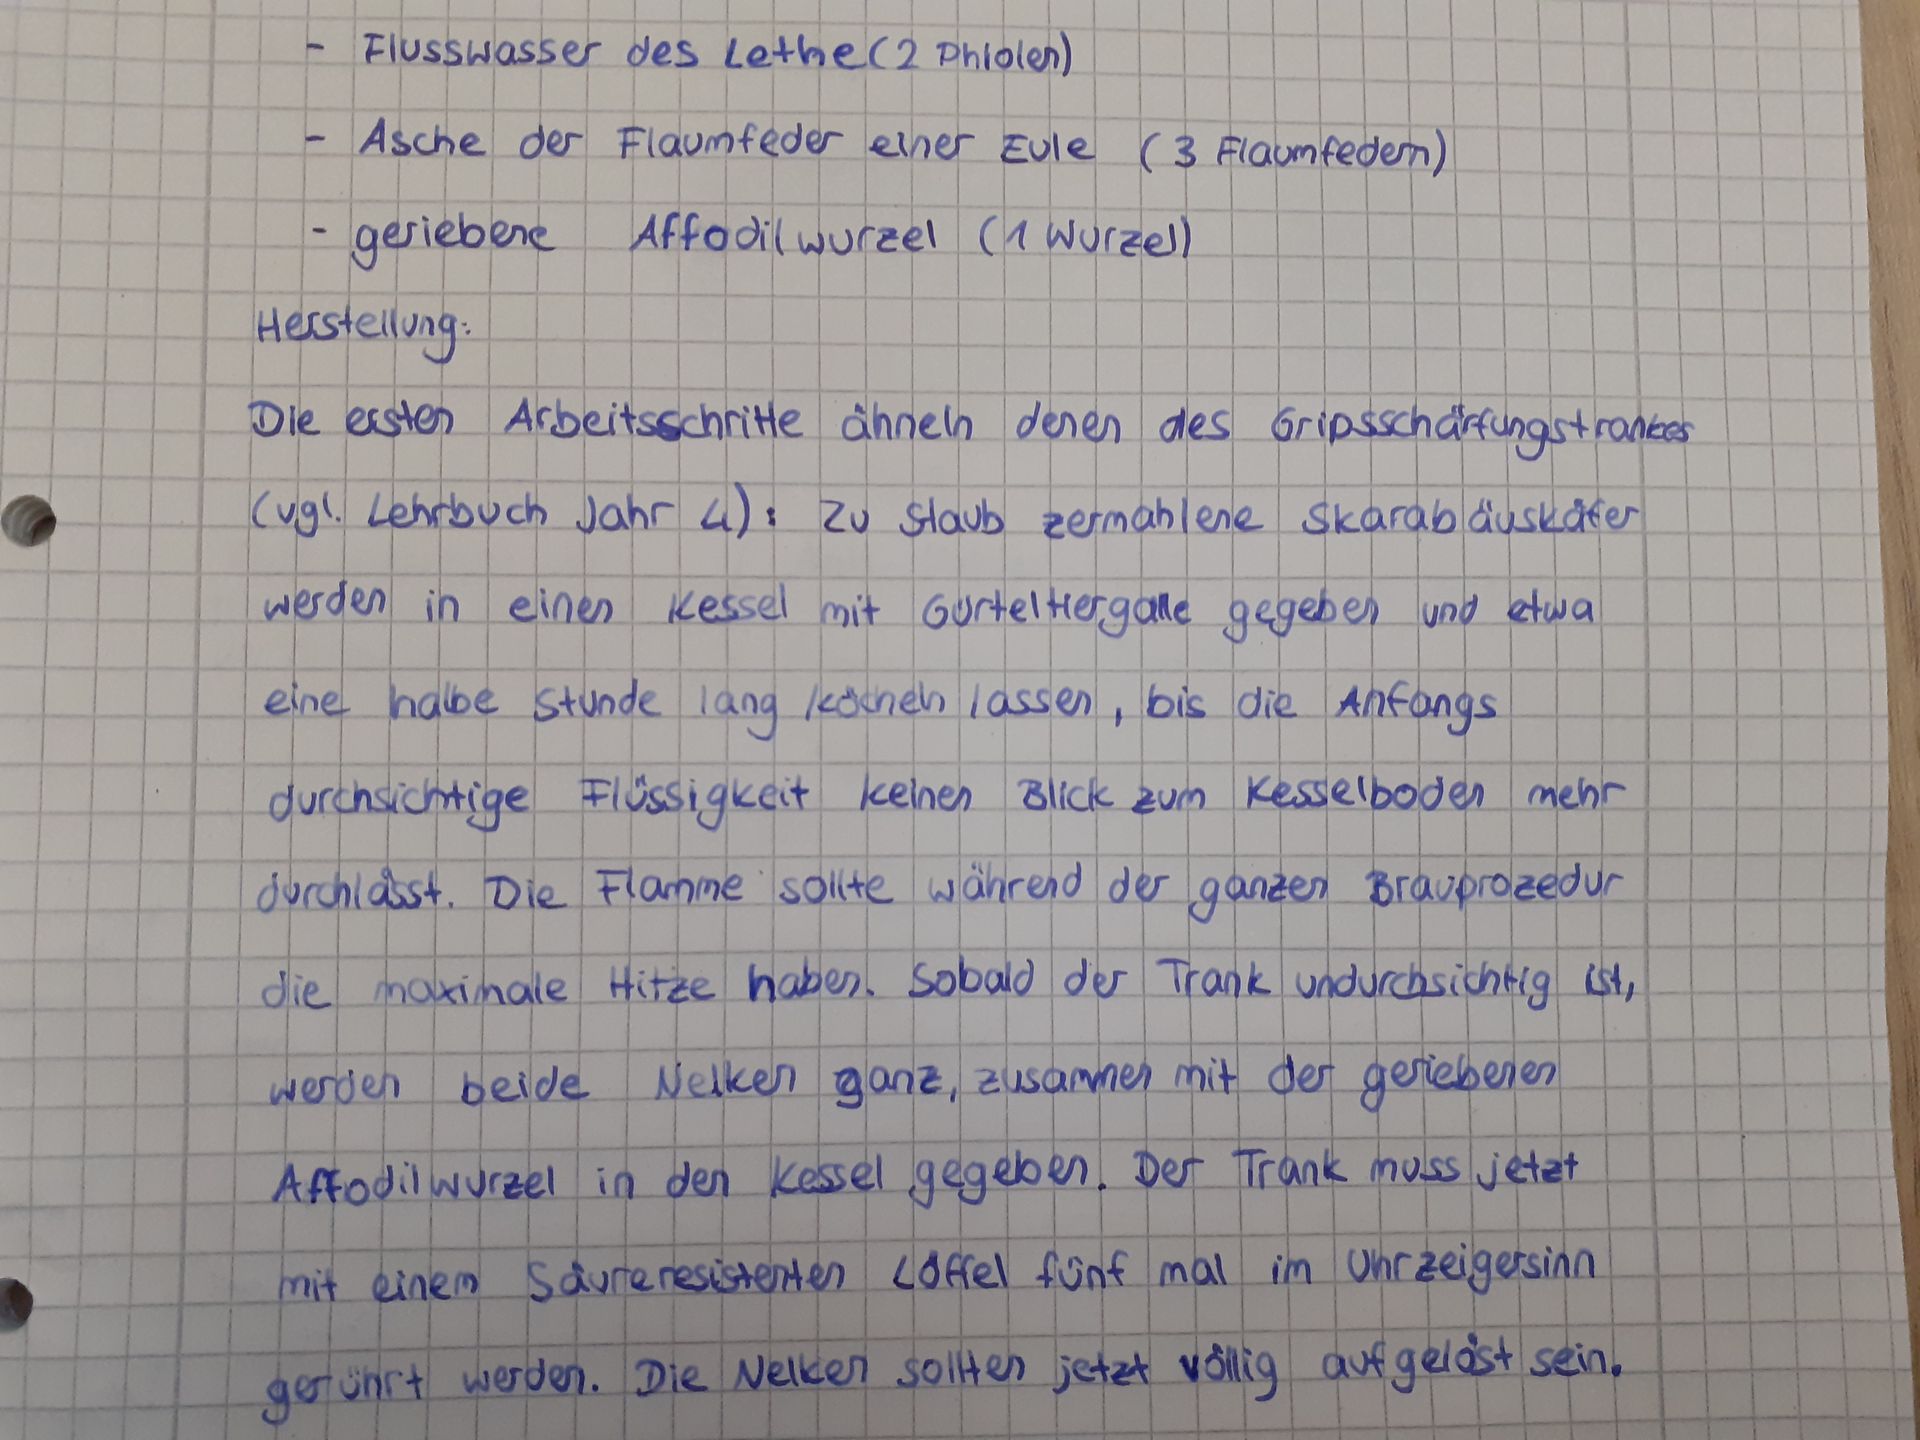 - Flusswasser des Lethe (2 Phiolen)
- Asche der Flaumfeder einer Eule (3 Flaumfedern)
- geriebene Affodilwurzel (1 Wurzel)
Herstellung:
Die ersten Arbeitsschritte ähneln denen des Gripsschärfungstrankes
(vgl. Lehrbuch Jahr 4): Zu Staub zermahlene Skarabäuskäfer
werden in einen Kessel mit Gürteltiergalle gegeben und etwa
eine halbe Stunde lang köcheln lassen, bis die Anfangs
durchsichtige Flüssigkeit keinen Blick zum Kesselboden mehr
durchlässt. Die Flamme sollte während der ganzen Brauprozedur
die maximale Hitze haben. Sobald der Trank undurchsichtig ist,
werden beide Nelken ganz, zusammen mit der geriebenen
Affodilwurzel in den Kessel gegeben. Der Trank muss jetzt
mit einem Säureresistenten Löffel fünf mal im Uhrzeigersinn
gerührt werden. Die Nelken sollten jetzt völlig aufgelöst sein.